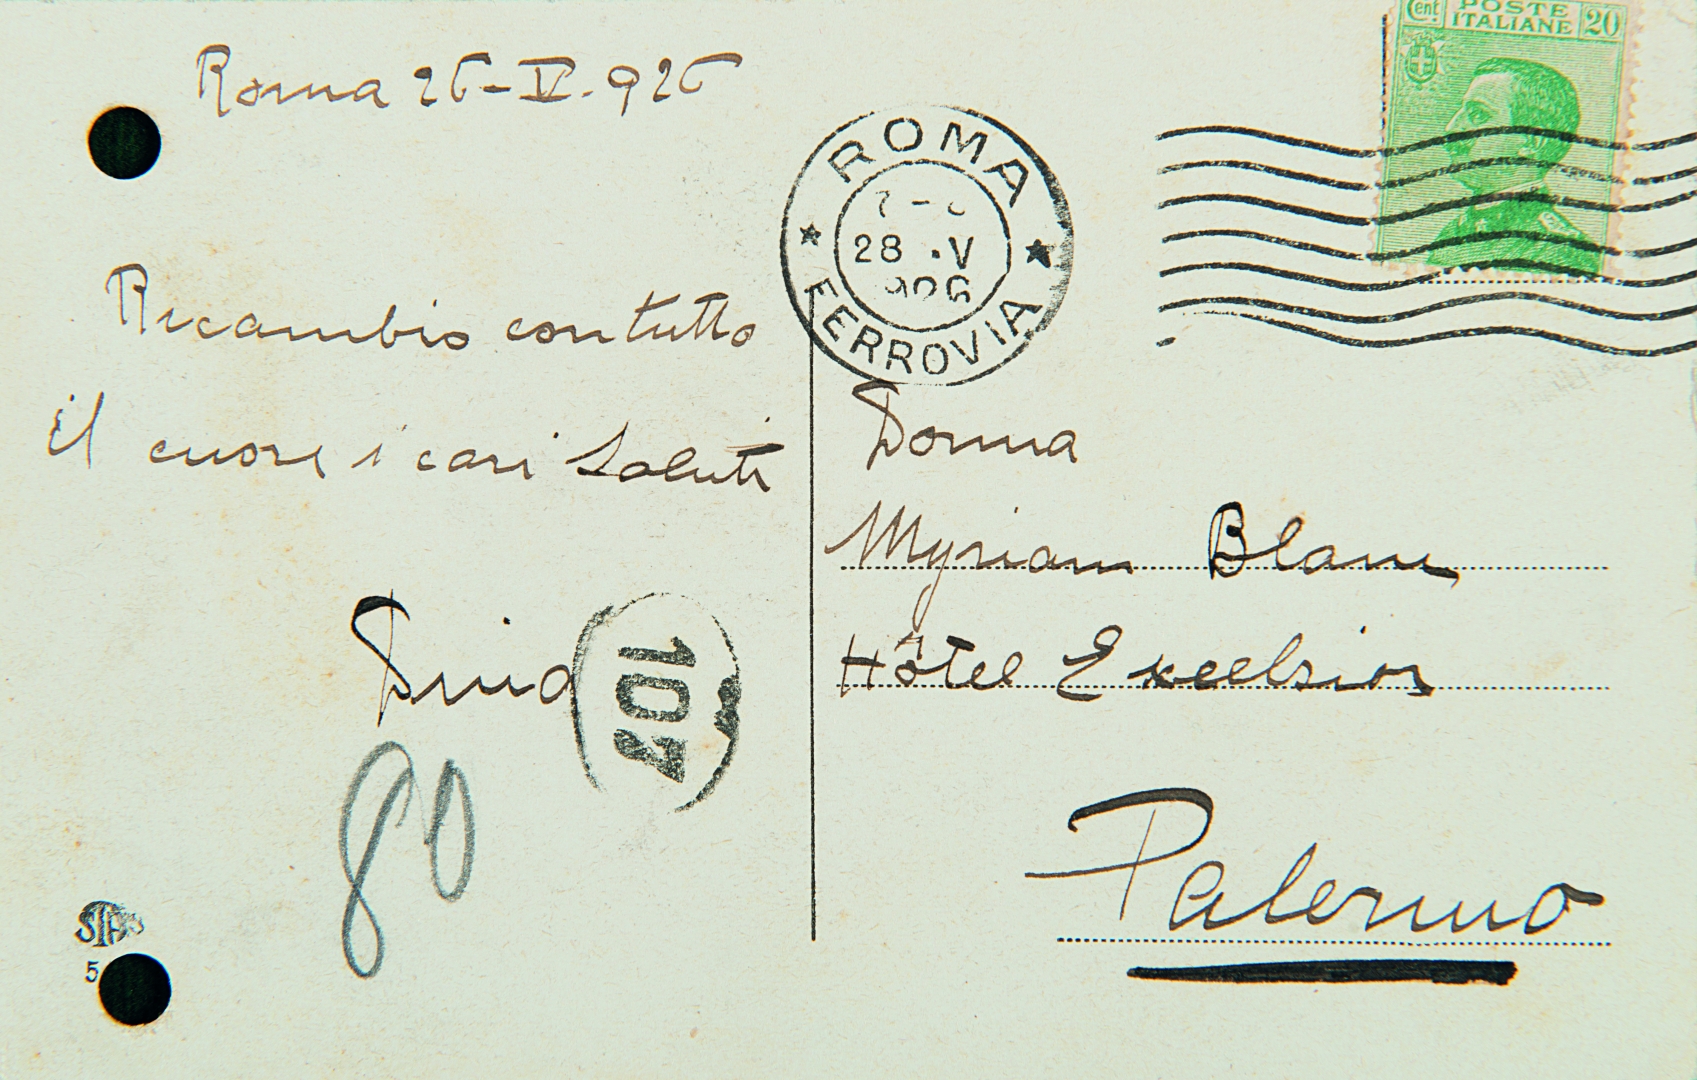 Roma 26-V.926
Ricambio con tutto
il cuore i cari saluti
107
80
5
Cent. POSTE ITALIANE 20
ROMA
28 .V
926
FERROVIA
Donna
Myriam Blanc
Hôtel Excelsior
Palermo